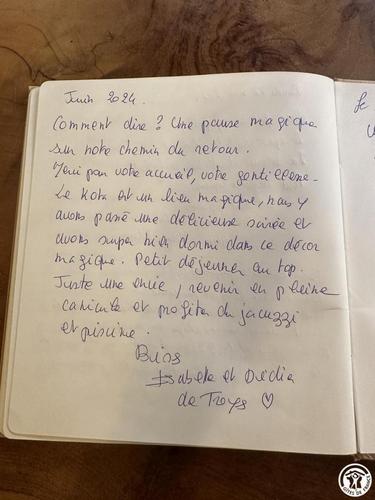 Juin 2024.
Comment dire ? Une pause magique
sur notre chemin du retour.
Merci pour votre accueil, votre gentillesse.
Le Kota est un lieu magique, nous y
avons passé une délicieuse soirée et
avons super bien dormi dans ce décor
magique. Petit déjeuner au top.
Juste une envie, revenir en pleine
canicule et profiter du jacuzzi
et piscine.
Bises
Isabelle et Didier
de Troyes ♡
GÎTES DE FRANCE